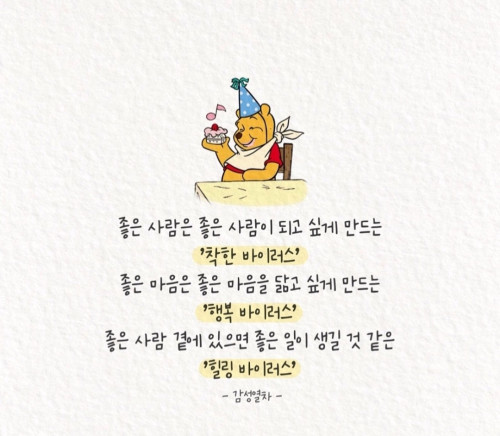 좋은 사람은 좋은 사람이 되고 싶게 만드는
'착한 바이러스'
좋은 마음은 좋은 마음을 닮고 싶게 만드는
'행복 바이러스'
좋은 사람 곁에 있으면 좋은 일이 생길 것 같은
'힐링 바이러스'
- 감성열차 -